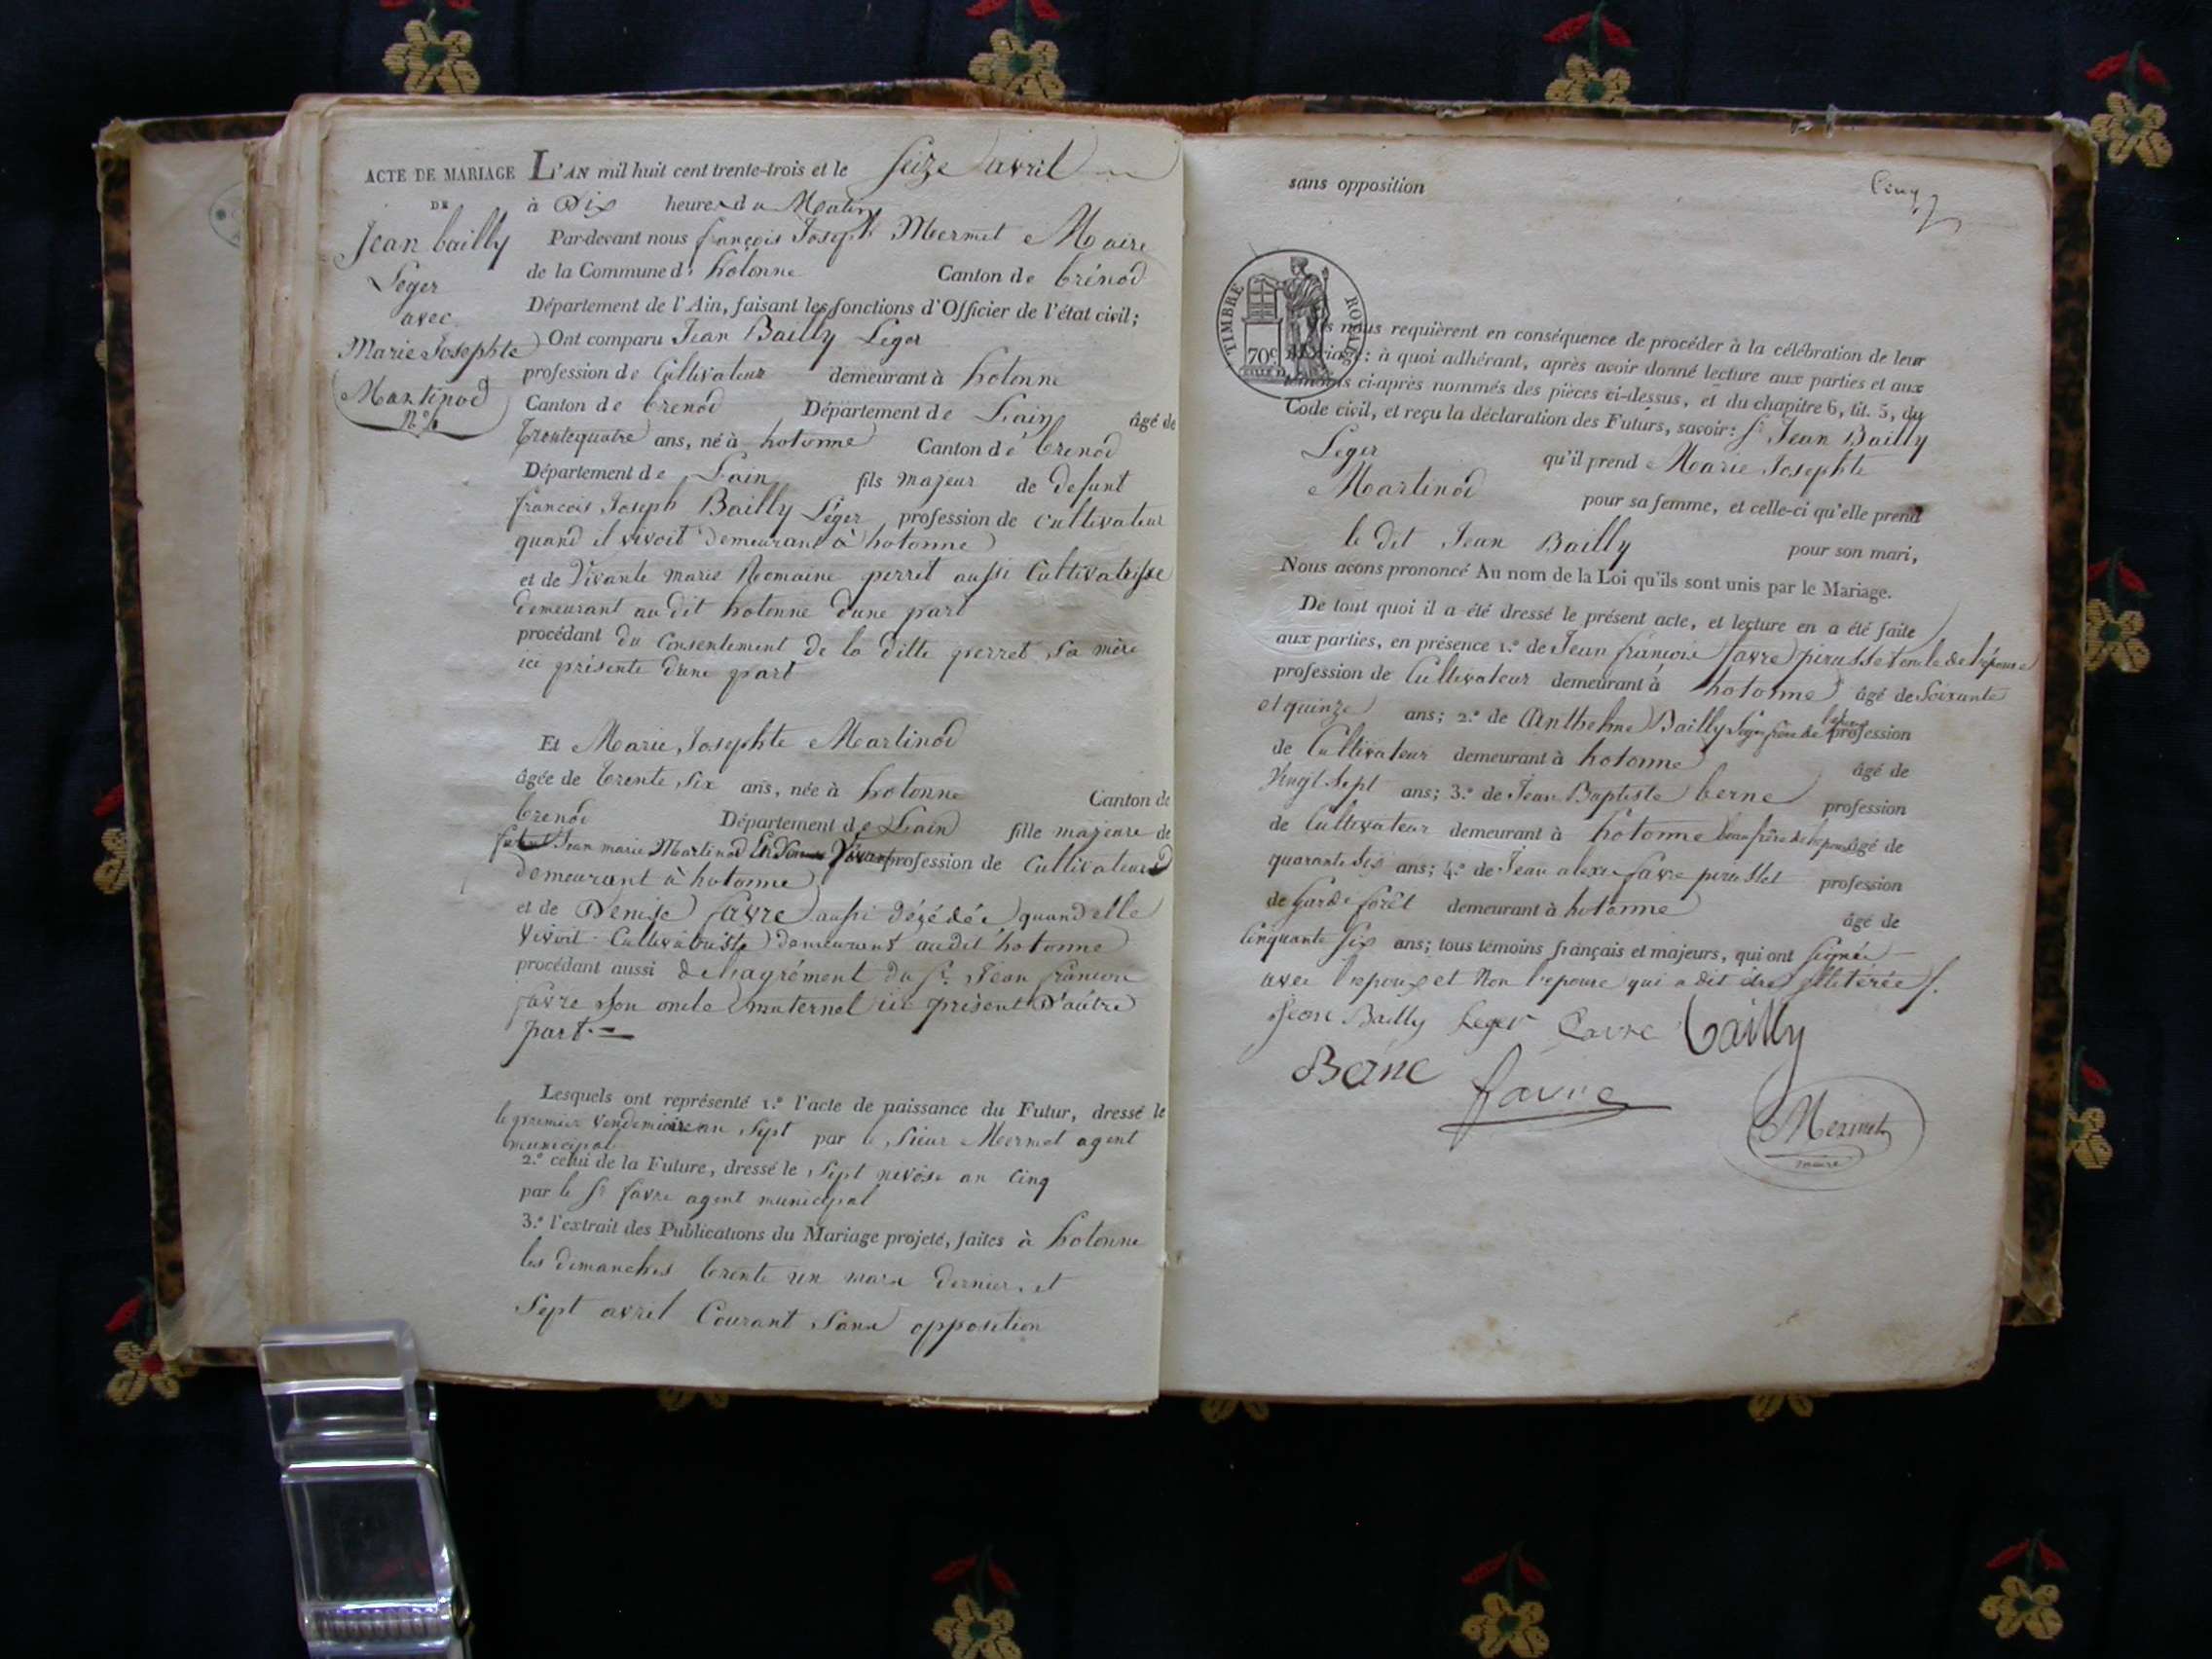 ACTE DE MARIAGE
DE
Jean bailly
Leger
avec
Marie Josephte
Martinod
L'AN mil huit cent trente-trois et le Seize avril
à Dix heures du Matin
Par-devant nous françois Joseph Mermet Maire
de la Commune de hotonne Canton de brénod
Département de l'Ain, faisant les fonctions d'Officier de l'état civil;
Ont comparu Jean Bailly Leger
profession de Cultivateur demeurant à hotonne
Canton de brenod Département de Lain âgé de
trentequatre ans, né à hotonne Canton de brenod
Département de Lain fils majeur de defunt
francois Joseph Bailly Léger profession de cultivateur
quand il vivoit demeurant à hotonne
et de Vivante marie Romaine perret aussi Cultivatrisse
demeurant au dit hotonne dune part
procédant du Consentement de la ditte perret sa mère
ici présente dune part
Et Marie Josephte Martinod
âgée de trente six ans, née à hotonne Canton de
brenod Département de Lain fille majeure de
Jean marie Martinod profession de Cultivateur
demeurant à hotonne
et de Denise favre aussi dézédée quand elle
vivoit Cultivatriste demeurant audit hotonne
procédant aussi de l'agrément du Sr. Jean francois
favre son oncle maternel ici présent D'autre
part.
Lesquels ont représenté 1.º l'acte de naissance du Futur, dressé le
le premier vendemiaire an sept par le Sieur Mermet agent
municipal
2.º celui de la Future, dressé le sept nivôse an Cinq
par le Sr favre agent municipal
3.º l'extrait des Publications du Mariage projeté, faites à hotonne
les dimanches trente un mars dernier, et
Sept avril Courant Sans opposition
sans opposition
Cinq
TIMBRE ROYAL
70c
nous requièrent en conséquence de procéder à la célébration de leur
mariage: à quoi adhérant, après avoir donné lecture aux parties et aux
témoins ci-après nommés des pièces ci-dessus, et du chapitre 6, tit. 5, du
Code civil, et reçu la déclaration des Futurs, savoir: Sr Jean Bailly
Leger qu'il prend Marie Josephte
Martinod pour sa femme, et celle-ci qu'elle prend
le dit Jean Bailly pour son mari,
Nous avons prononcé Au nom de la Loi qu'ils sont unis par le Mariage.
De tout quoi il a été dressé le présent acte, et lecture en a été faite
aux parties, en présence 1.º de Jean francois favre pirusset oncle de l'épouse
profession de Cultivateur demeurant à hotonne âgé de Soixante
et quinze ans; 2.º de Anthelme Bailly Léger frère de l'époux profession
de Cultivateur demeurant à hotonne âgé de
Vingt Sept ans; 3.º de Jean Baptiste berne profession
de Cultivateur demeurant à hotonne beau frère de l'époux âgé de
quarante six ans; 4.º de Jean alexis favre pirusset profession
de garde forêt demeurant à hotonne âgé de
Cinquante six ans; tous témoins français et majeurs, qui ont signés
avec l'epoux et Non l'epouse qui a dit être illetérée
Jean Bailly Leger favre Bailly
Berne
favre
Mermet
maire